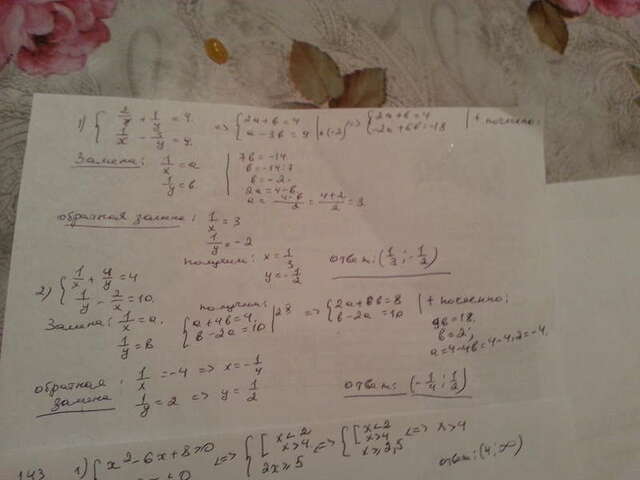 1) { 2/x + 1/y = 4. 1/x - 3/y = 9. => { 2a+b=4 a-3b=9 | *(-2) => { 2a+b=4 -2a+6b=-18 | + почленно:
Замена: 1/x = a 1/y = b
7b=-14
b=-14:7
b=-2.
2a=4-b.
a = (4-b)/2 = (4+2)/2 = 3.
обратная замена: 1/x = 3
1/y = -2
получим: x = 1/3 y = -1/2
ответ: (1/3; -1/2)
2) { 1/x + 4/y = 4 1/y - 2/x = 10.
Замена: 1/x = a. 1/y = b
получим:
{ a+4b=4. b-2a=10 | 2 => { 2a+8b=8 b-2a=10 | + почленно:
9b=18.
b=2;
a=4-4b=4-4·2=-4.
обратная замена: 1/x = -4 => x = -1/4
1/y = 2 => y = 1/2
ответ: (-1/4; 1/2)
143 1) { x²-6x+8>0 <=> { [ x<2 x>4 2x≥5 <=> { [ x<2 x>4 x≥2,5 <=> x>4
ответ: (4; ∞)